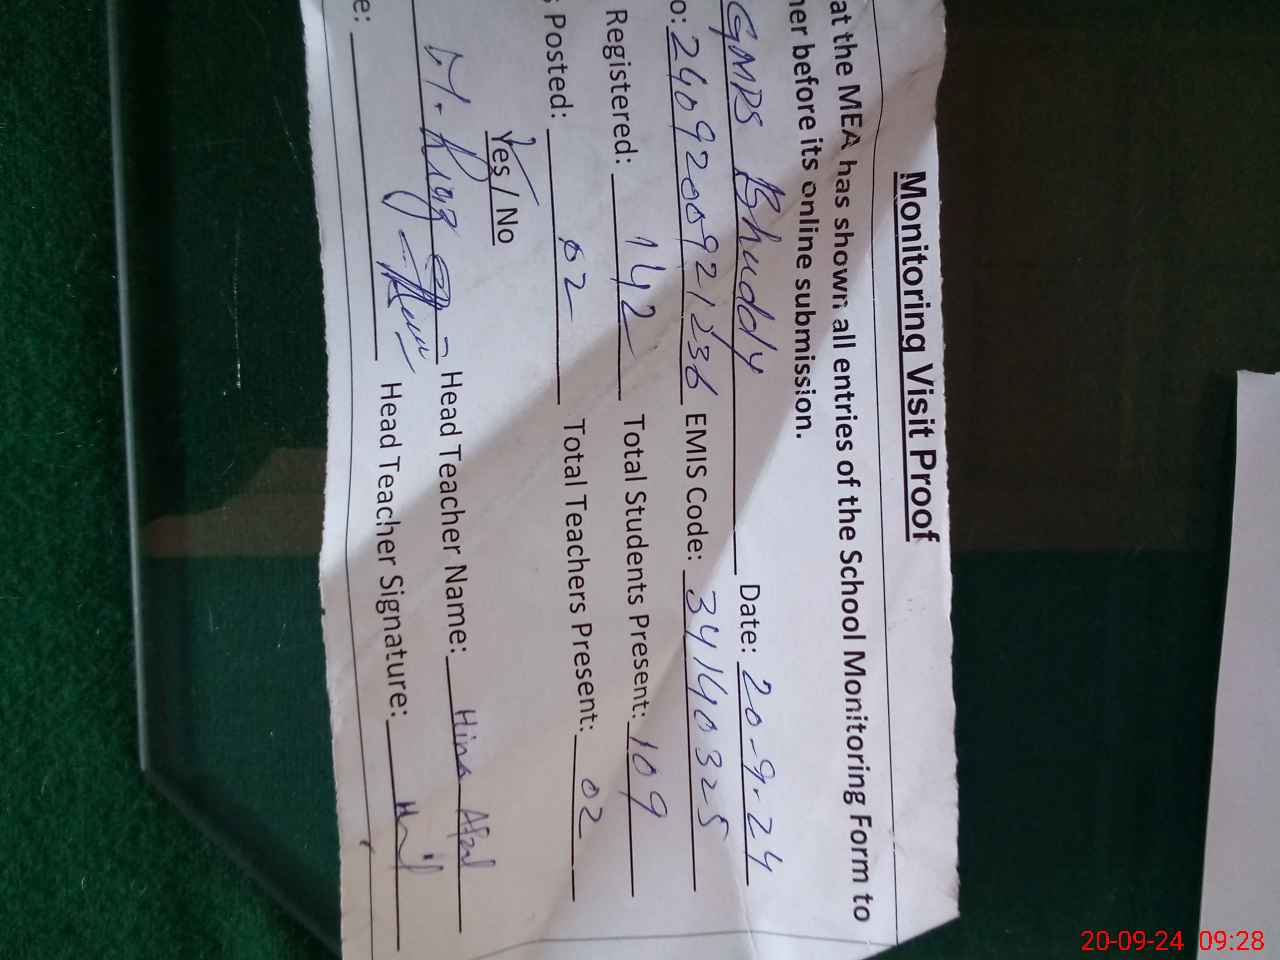 Monitoring Visit Proof
at the MEA has shown all entries of the School Monitoring Form to
her before its online submission.
GMPS Bhuddy Date: 20-9-24
o: 2409200921236 EMIS Code: 34140325
Registered: 142 Total Students Present: 109
Posted: 02 Total Teachers Present: 02
Yes / No
M. Riaz Head Teacher Name: Hina Afzal
e: Head Teacher Signature:
20-09-24 09:28